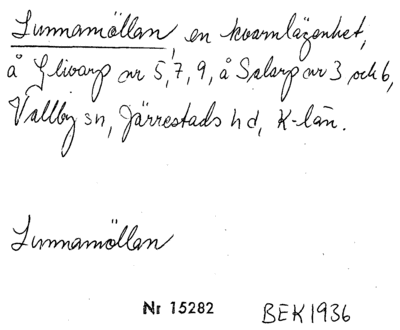 Lunnamöllan, en kvarnlägenhet,
å Glivarp nr 5, 7, 9, å Salarp nr 3 och 6,
Vallby sn, Järrestads hd, K-län.
Lunnamöllan
Nr 15282 BEK 1936